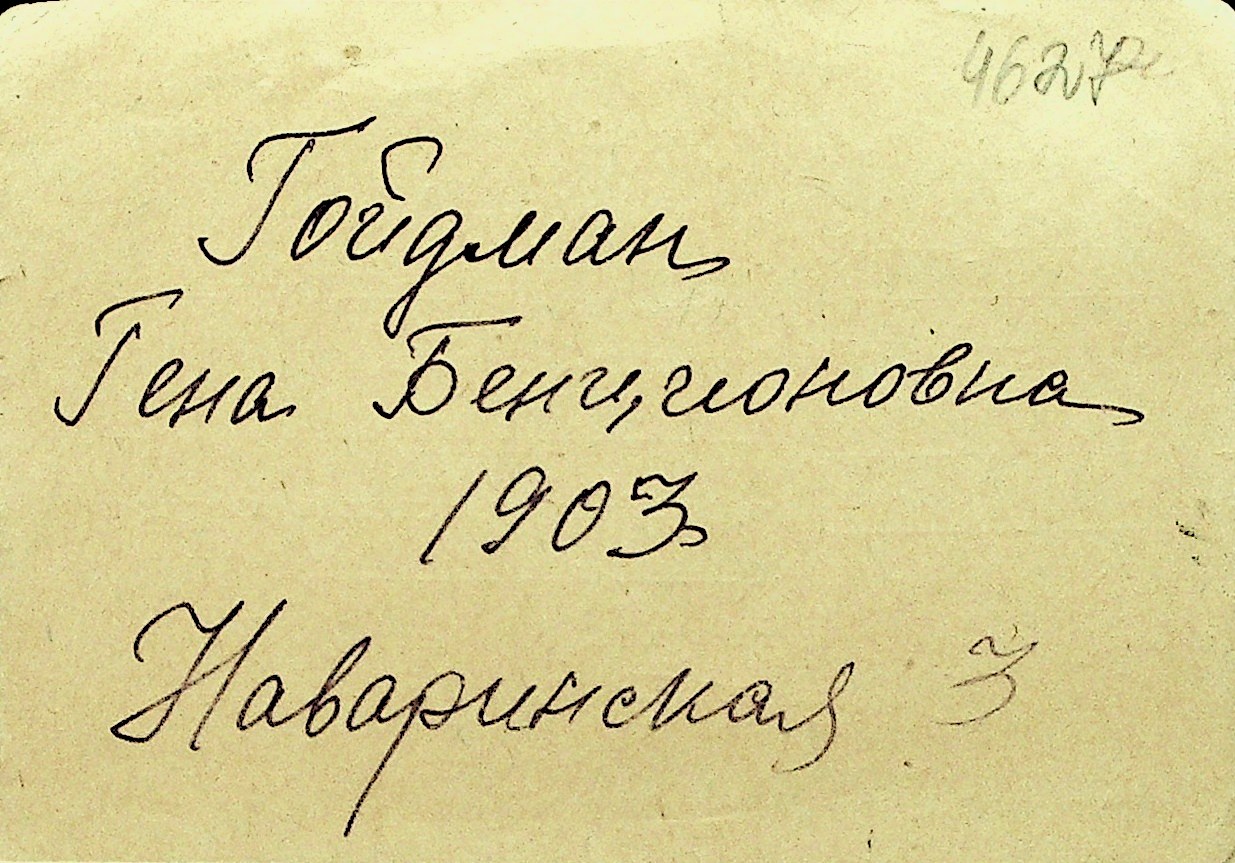 Гойдман
Гена Бенционовна
1903
Наваринская 3